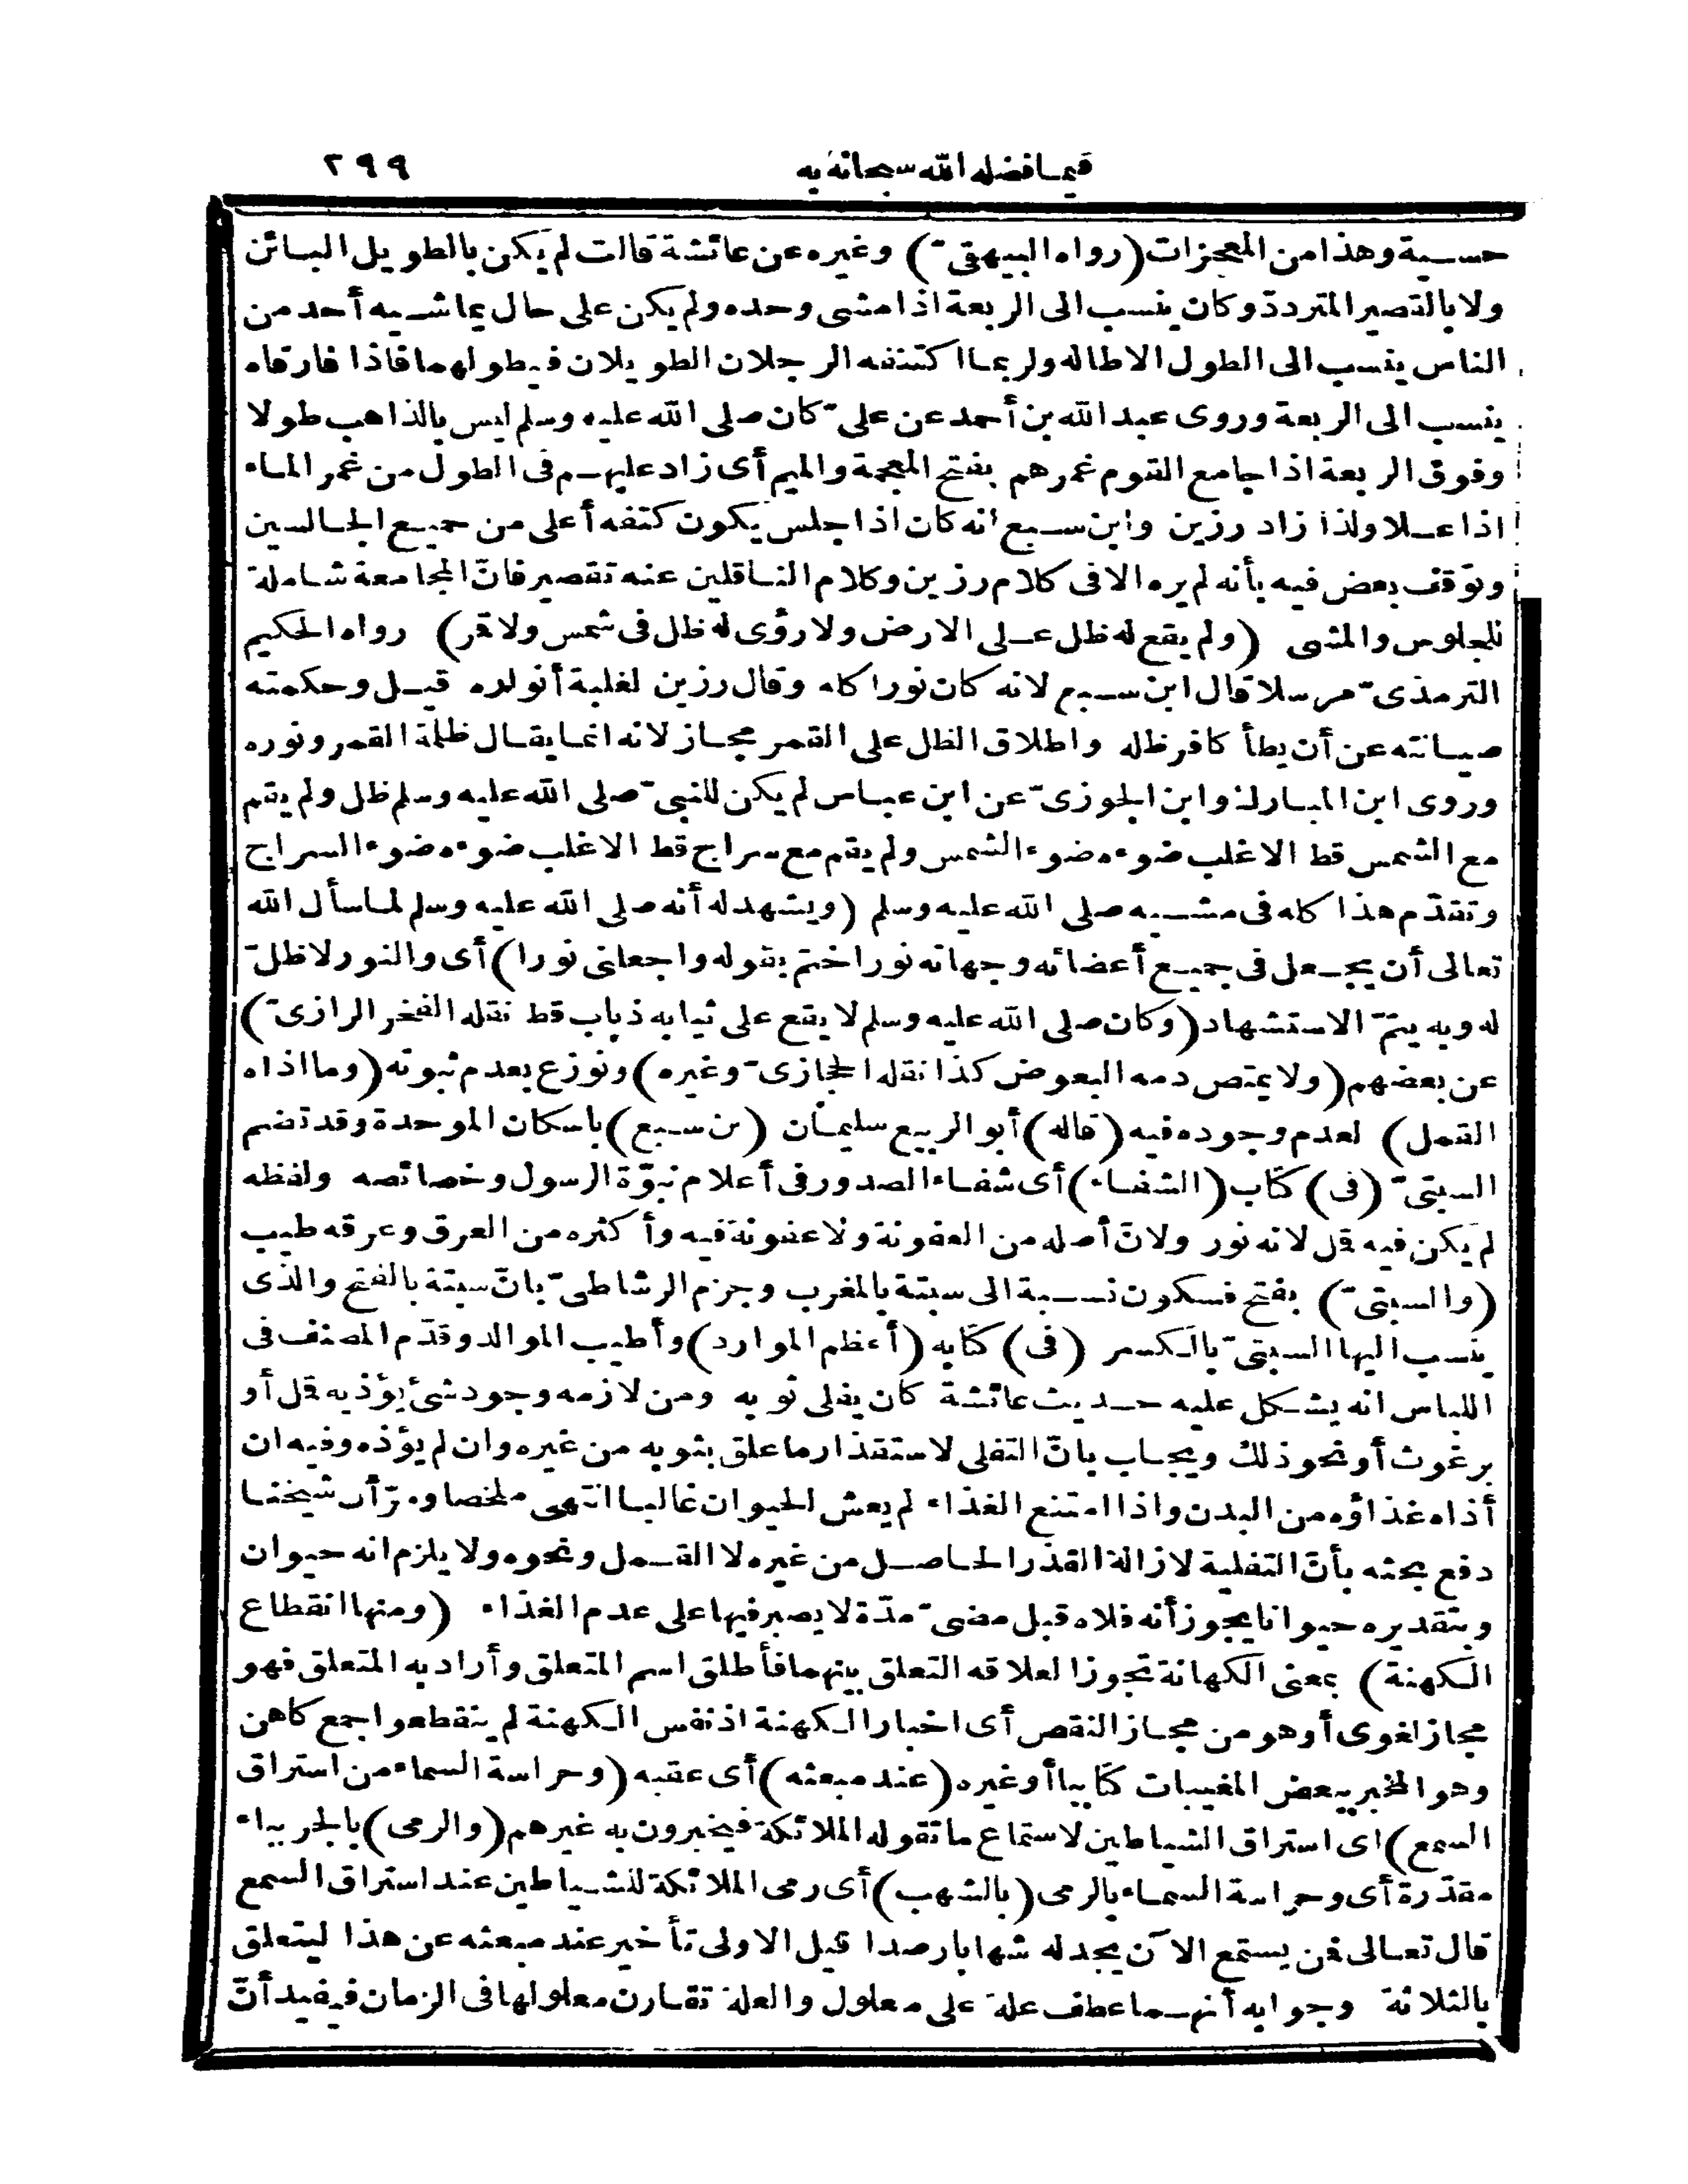 فيما فضله الله سبحانه به ٢٩٩
حسية وهذا من المعجزات (رواه البيهقىّ) وغيره عن عائشة قالت لم يكن بالطويل البائن
ولا بالقصير المتردد وكان ينسب الى الربعة اذا مشى وحده ولم يكن على حال يماشيه أحد من
الناس ينسب الى الطول الا طاله ولربما اكتنفه الرجلان الطويلان فيطولهما فاذا فارقاه
ينسب الى الربعة وروى عبد الله بن أحمد عن علىّ كان صلى الله عليه وسلم ليس بالذاهب طولا
وفوق الربعة اذا جامع القوم غمرهم بفتح المعجمة والميم أى زاد عليهم فى الطول من غمر الماء
اذا علا ولذا زاد رزين وابن سبع انه كان اذا جلس يكون كتفه أعلى من جميع الجالسين
وتوقف بعض فيه بأنه لم يره الا فى كلام رزين وكلام الناقلين عنه تقصير فانّ المجامعة شاملة
للجلوس والمشى (ولم يقع له ظل على الارض ولا رؤى له ظل فى شمس ولا قمر) رواه الحكيم
الترمذىّ مرسلا قال ابن سبع لانه كان نورا كله وقال رزين لغلبة أنواره قيل وحكمته
صيانته عن أن يطأ كافر ظله واطلاق الظل على القمر مجاز لانه انما يقال ظلمة القمر ونوره
وروى ابن المبارك وابن الجوزىّ عن ابن عباس لم يكن للنبىّ صلى الله عليه وسلم ظل ولم يقم
مع الشمس قط الا غلب ضوءه ضوء الشمس ولم يقم مع سراج قط الا غلب ضوءه ضوء السراج
وتقدّم هذا كله فى مشيه صلى الله عليه وسلم (ويشهد له أنه صلى الله عليه وسلم لما سأل الله
تعالى أن يجعل فى جميع أعضائه وجهاته نورا ختم بقوله واجعلنى نورا) أى والنور لا ظلّ
له وبه يتمّ الاستشهاد (وكان صلى الله عليه وسلم لا يقع على ثيابه ذباب قط نقله الفخر الرازىّ)
عن بعضهم (ولا يمتص دمه البعوض كذا نقله الحجازىّ وغيره) ونوزع بعدم ثبوته (وما اذاه
القمل) لعدم وجوده فيه (قاله) أبو الربيع سليمان (بن سبع) باسكان الموحدة وقد تضم
السبتىّ (فى) كتاب (الشفاء) أى شفاء الصدور فى أعلام نبوّة الرسول وخصائصه ولفظه
لم يكن فيه قمل لانه نور ولانّ أصله من العفونة ولا عفونة فيه وأكثره من العرق وعرقه طيب
(والسبتىّ) بفتح فسكون نسبة الى سبتة بالمغرب وجزم الرشاطىّ بانّ سبتة بالفتح والذى
ينسب اليها السبتىّ بالكسر (فى) كتابه (أعظم الموارد) وأطيب الموالد وقدّم المصنف فى
اللباس انه يشكل عليه حديث عائشة كان يفلى ثوبه ومن لازمه وجود شئ يؤذيه قمل أو
برغوث أو نحو ذلك ويجاب بانّ التفلى لاستقذار ما علق بثوبه من غيره وان لم يؤذه وفيه ان
أذاه غذاؤه من البدن واذا امتنع الغذاء لم يعش الحيوان غالبا انتهى ملخصا ومرّ أن شيخنا
دفع بحثه بأنّ التفلية لازالة القذر الحاصل من غيره لا القمل ونحوه ولا يلزم انه حيوان
وبتقديره حيوانا يجوز أنه فلاه قبل مضىّ مدّة لا يصبر فيها على عدم الغذاء (ومنها انقطاع
الكهنة) بمعنى الكهانة تجوزا لعلاقه التعلق بينهما فأطلق اسم المتعلق وأراد به المتعلق فهو
مجاز لغوى أو هو من مجاز النقص أى اخبار الكهنة اذ نفس الكهنة لم ينقطعوا جمع كاهن
وهو المخبر ببعض المغيبات كتابيا أو غيره (عند مبعثه) أى عقبه (وحراسة السماء من استراق
السمع) اى استراق الشياطين لاستماع ما تقوله الملائكة فيخبرون به غيرهم (والرمى) بالجر بباء
مقدّرة أى وحراسة السماء بالرمى (بالشهب) أى رمى الملائكة للشياطين عند استراق السمع
قال تعالى فمن يستمع الآن يجد له شهابا رصدا قيل الاولى تأخير عند مبعثه عن هذا ليتعلق
بالثلاثة وجوابه أنهما عطف علة على معلول والعلة تقارن معلولها فى الزمان فيفيد أنّ